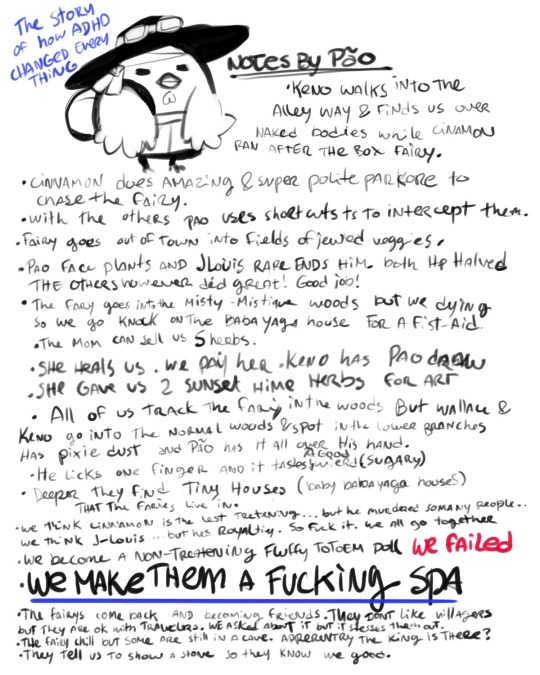 The Story
of how ADHD
CHANGED EVERY
THING
NOTES BY PÃO
• KENO WALKS INTO THE
Alley WAY & FINDS US OVER
NAKED BODIES while CINAMON
RAN AFTER THE BOX FAIRY.
• CINNAMON does AMAZING & super polite PARKORE to
chase the FAIRY.
• with the others PAO uses shortcuts ts to intercept them.
• Fairy goes out of Town into fields of jewed veggies,
• PAO FACE plants AND JLOUIS RARE ENDS HIM. both HP HALVED
THE OTHERS however did great! Good job!
• The FAIRY goes into the MISTY-MISTIQUE woods but we dying
so we go KNOCK ON THE BABA YAGA house FOR A FIST-AID.
• The MOM CAN sell us 5 herbs.
• SHE HEALS US. we pay her. KENO HAS PAO draw
• SHE GAVE US 2 SUNSET HIME HERBS FOR ART
• All of us TRACK THE FAIRY in the woods But WALLACE &
KENO go into The NORMAL WOODS & SPOT IN THE lower BRANCHES
HAS pixie dust AND PÃO HAS IT All over His hand.
• He licks one finger AND it tastes A GOOD wierd (SUGARY)
• DEEPER THEY FIND TINY HOUSES (baby babayaga houses)
THAT THE FAERIES live in.
• we THINK CINNAMON is the lest TRETENING... but he murdered so many people..
we think J-Louis ... but hes ROYALTIY. So Fuck it. we all go together
• we become A NON-TREATENING Fluffy TOTOEM POLL WE FAILED
• WE MAKE THEM A FUCKING SPA
• The FAIRYS COME BACK AND becoming FRIENDS. They DONT like villagers
but They are ok with TRAVELERS. WE ASKED About IT but it stesses them out.
• The FAIRY chill but some are still in a CAVE. APPERENTRY THE KING is THERE?
• They Tell US TO show A stone so they know we good.